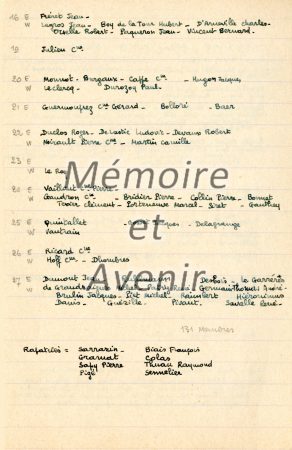 16 E Frénet Jean -
W Legros Jean - Boy de la Tour Hubert - D'Armaville Charles -
Oselle Robert - Paqueron Jean - Vincent Bernard.
19 Julien Cne
20 E Monnot - Burgaux - Caffe Cne - Hugon Jacques
W Leclercq - Durozoy Paul -
21 E Guermouprez Cne Gérard - Bolloré - Baer
22 E Duclos Roger - Devaux Robert
W Noirault Pierre Cne - Martin Camille
23 E
W Le Roy
24 E Vaillant
W Gaudron Cne - Bridier Pierre - Collin Pierre - Bonnet
Texier Clément - Marcel - Gauthey
25 E Quintallet - Delagrange
W Vautrain
26 E Richard Cne
W Hoff Cne - Dhombres
27 E Dumont Desbois - Le Garrérès
W de Grandsaignes
Brulin Jacques - Michel - Raimbert Hieronimus
Danis - Guézille Pivant - Savalle René -
171 Membres
Rapatriés = Sarrazin - Biais François
Gramat Colas
Sapy Pierre Thuau Raymond
Pigu Sennelier
Mémoire
et
Avenir